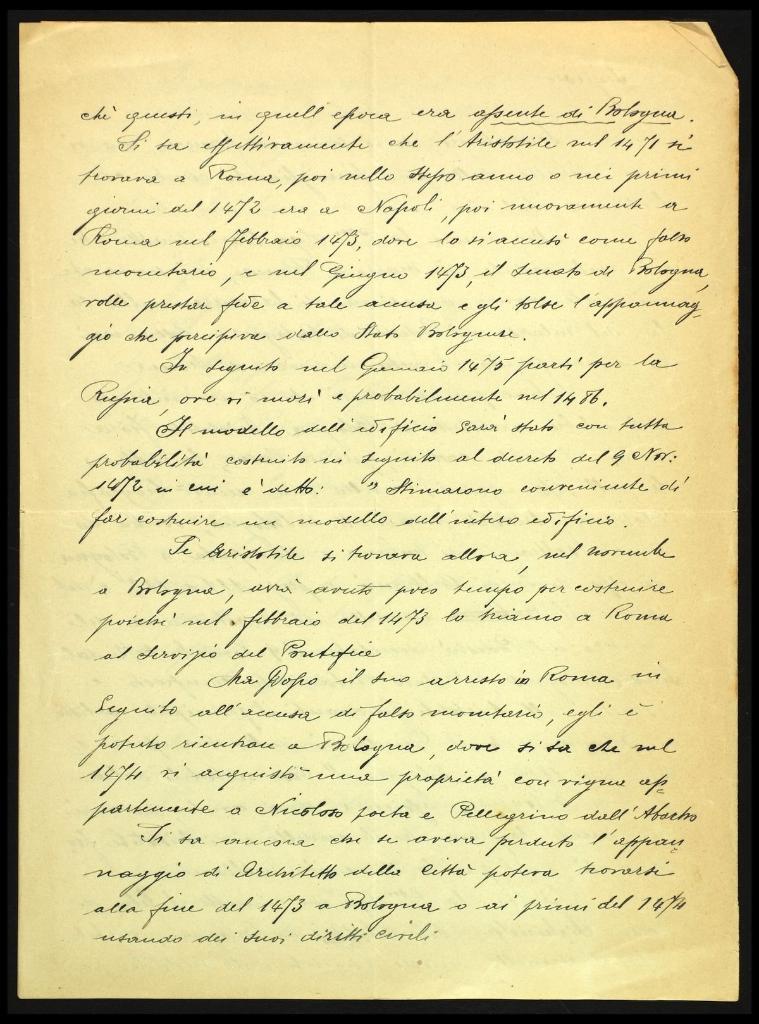 chè questi, in quell'epoca era assente di Bologna.
Si sa effettivamente che l'Aristotile nel 1471 si
trovava a Roma, poi nello stesso anno o nei primi
giorni del 1472 era a Napoli, poi nuovamente a
Roma nel febbraio 1473, dove lo si accusò come falso
monetario, e nel Giugno 1473, il Senato di Bologna,
volle prestar fede a tale accusa e gli tolse l'appannag-
gio che percepiva dallo Stato Bolognese.
In seguito nel Gennaio 1475 partì per la
Russia, ove vi morì e probabilmente nel 1486.
Il modello dell'edificio sarà stato con tutta
probabilità costruito in seguito al decreto del 9 Nov:
1472 in cui è detto: " Stimarono conveniente di
far costruire un modello dell'intero edificio.
Se Aristotile si trovava allora, nel novembre
a Bologna, avrà avuto poco tempo per costruire
poichè nel febbraio del 1473 lo troviamo a Roma
al servizio del Pontefice
Ma Dopo il suo arresto in Roma in
Seguito all'accusa di falso monetario, egli è
potuto rientrare a Bologna, dove si sa che nel
1474 vi acquistò una proprietà con vigna ap-
partenente a Nicoloso poeta e Pellegrino dall'Abacho
Si sa ancora che se aveva perduto l'appan-
naggio di Architetto della Città poteva trovarsi
alla fine del 1473 a Bologna o ai primi del 1474
usando dei suoi diritti civili